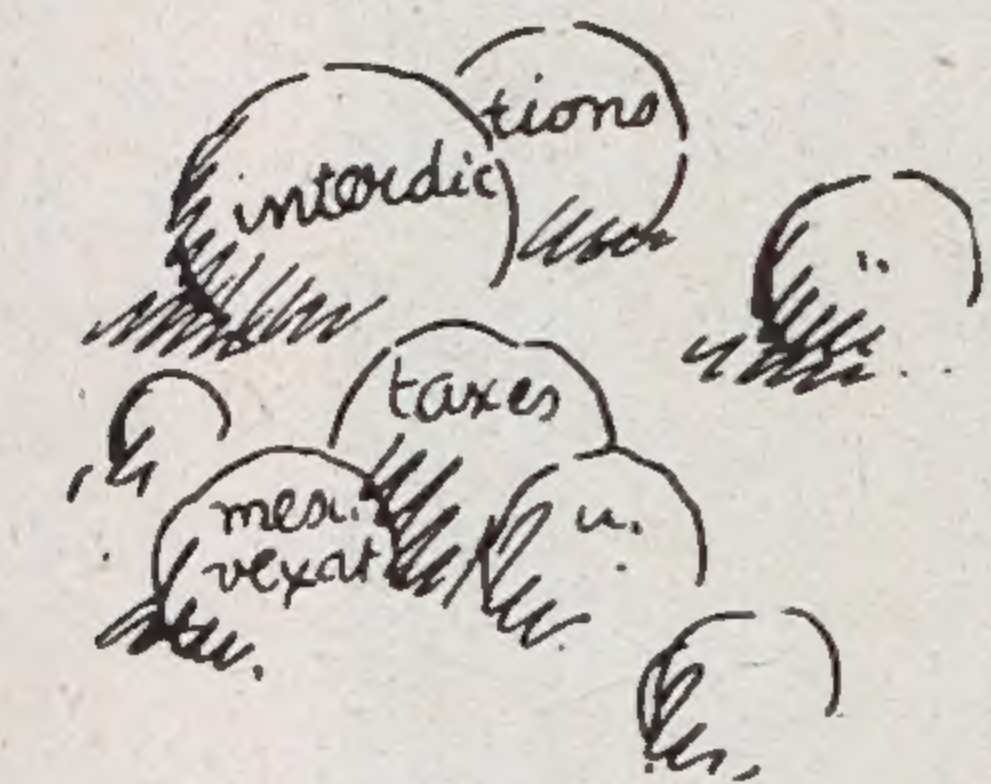 interdictions
taxes
mesu.
vexat